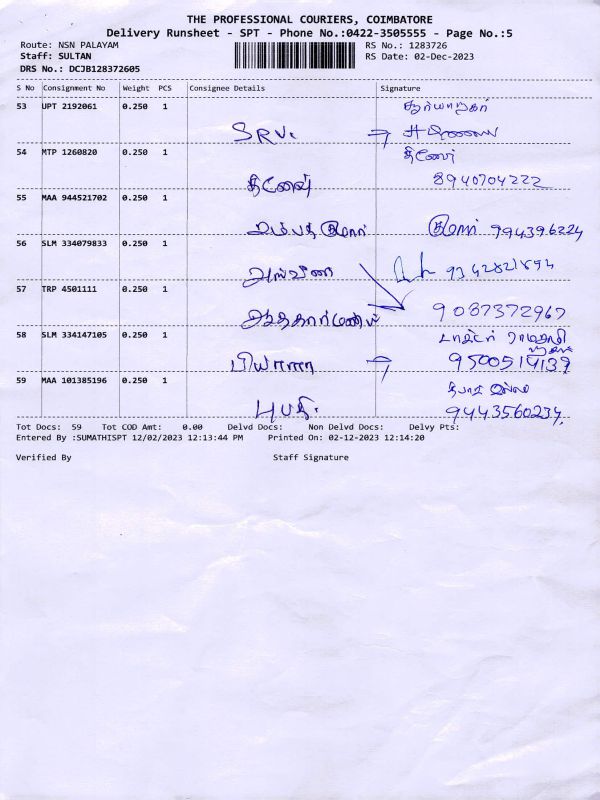 THE PROFESSIONAL COURIERS, COIMBATORE
Delivery Runsheet - SPT - Phone No.:0422-3505555 - Page No.:5
Route: NSN PALAYAM RS No.: 1283726
Staff: SULTAN RS Date: 02-Dec-2023
DRS No.: DCJB128372605
S No Consignment No Weight PCS Consignee Details Signature
53 UPT 2192061 0.250 1
SRV.
54 MTP 1260820 0.250 1
தினேஷ் 8940704222
55 MAA 944521702 0.250 1
சம்பத் குமார் குமார் 994396224
56 SLM 334079833 0.250 1
9342821894
57 TRP 4501111 0.250 1
9087372967
58 SLM 334147105 0.250 1
9500514139
59 MAA 101385196 0.250 1
9443560234
Tot Docs: 59 Tot COD Amt: 0.00 Delvd Docs: Non Delvd Docs: Delvy Pts:
Entered By :SUMATHISPT 12/02/2023 12:13:44 PM Printed On: 02-12-2023 12:14:20
Verified By Staff Signature